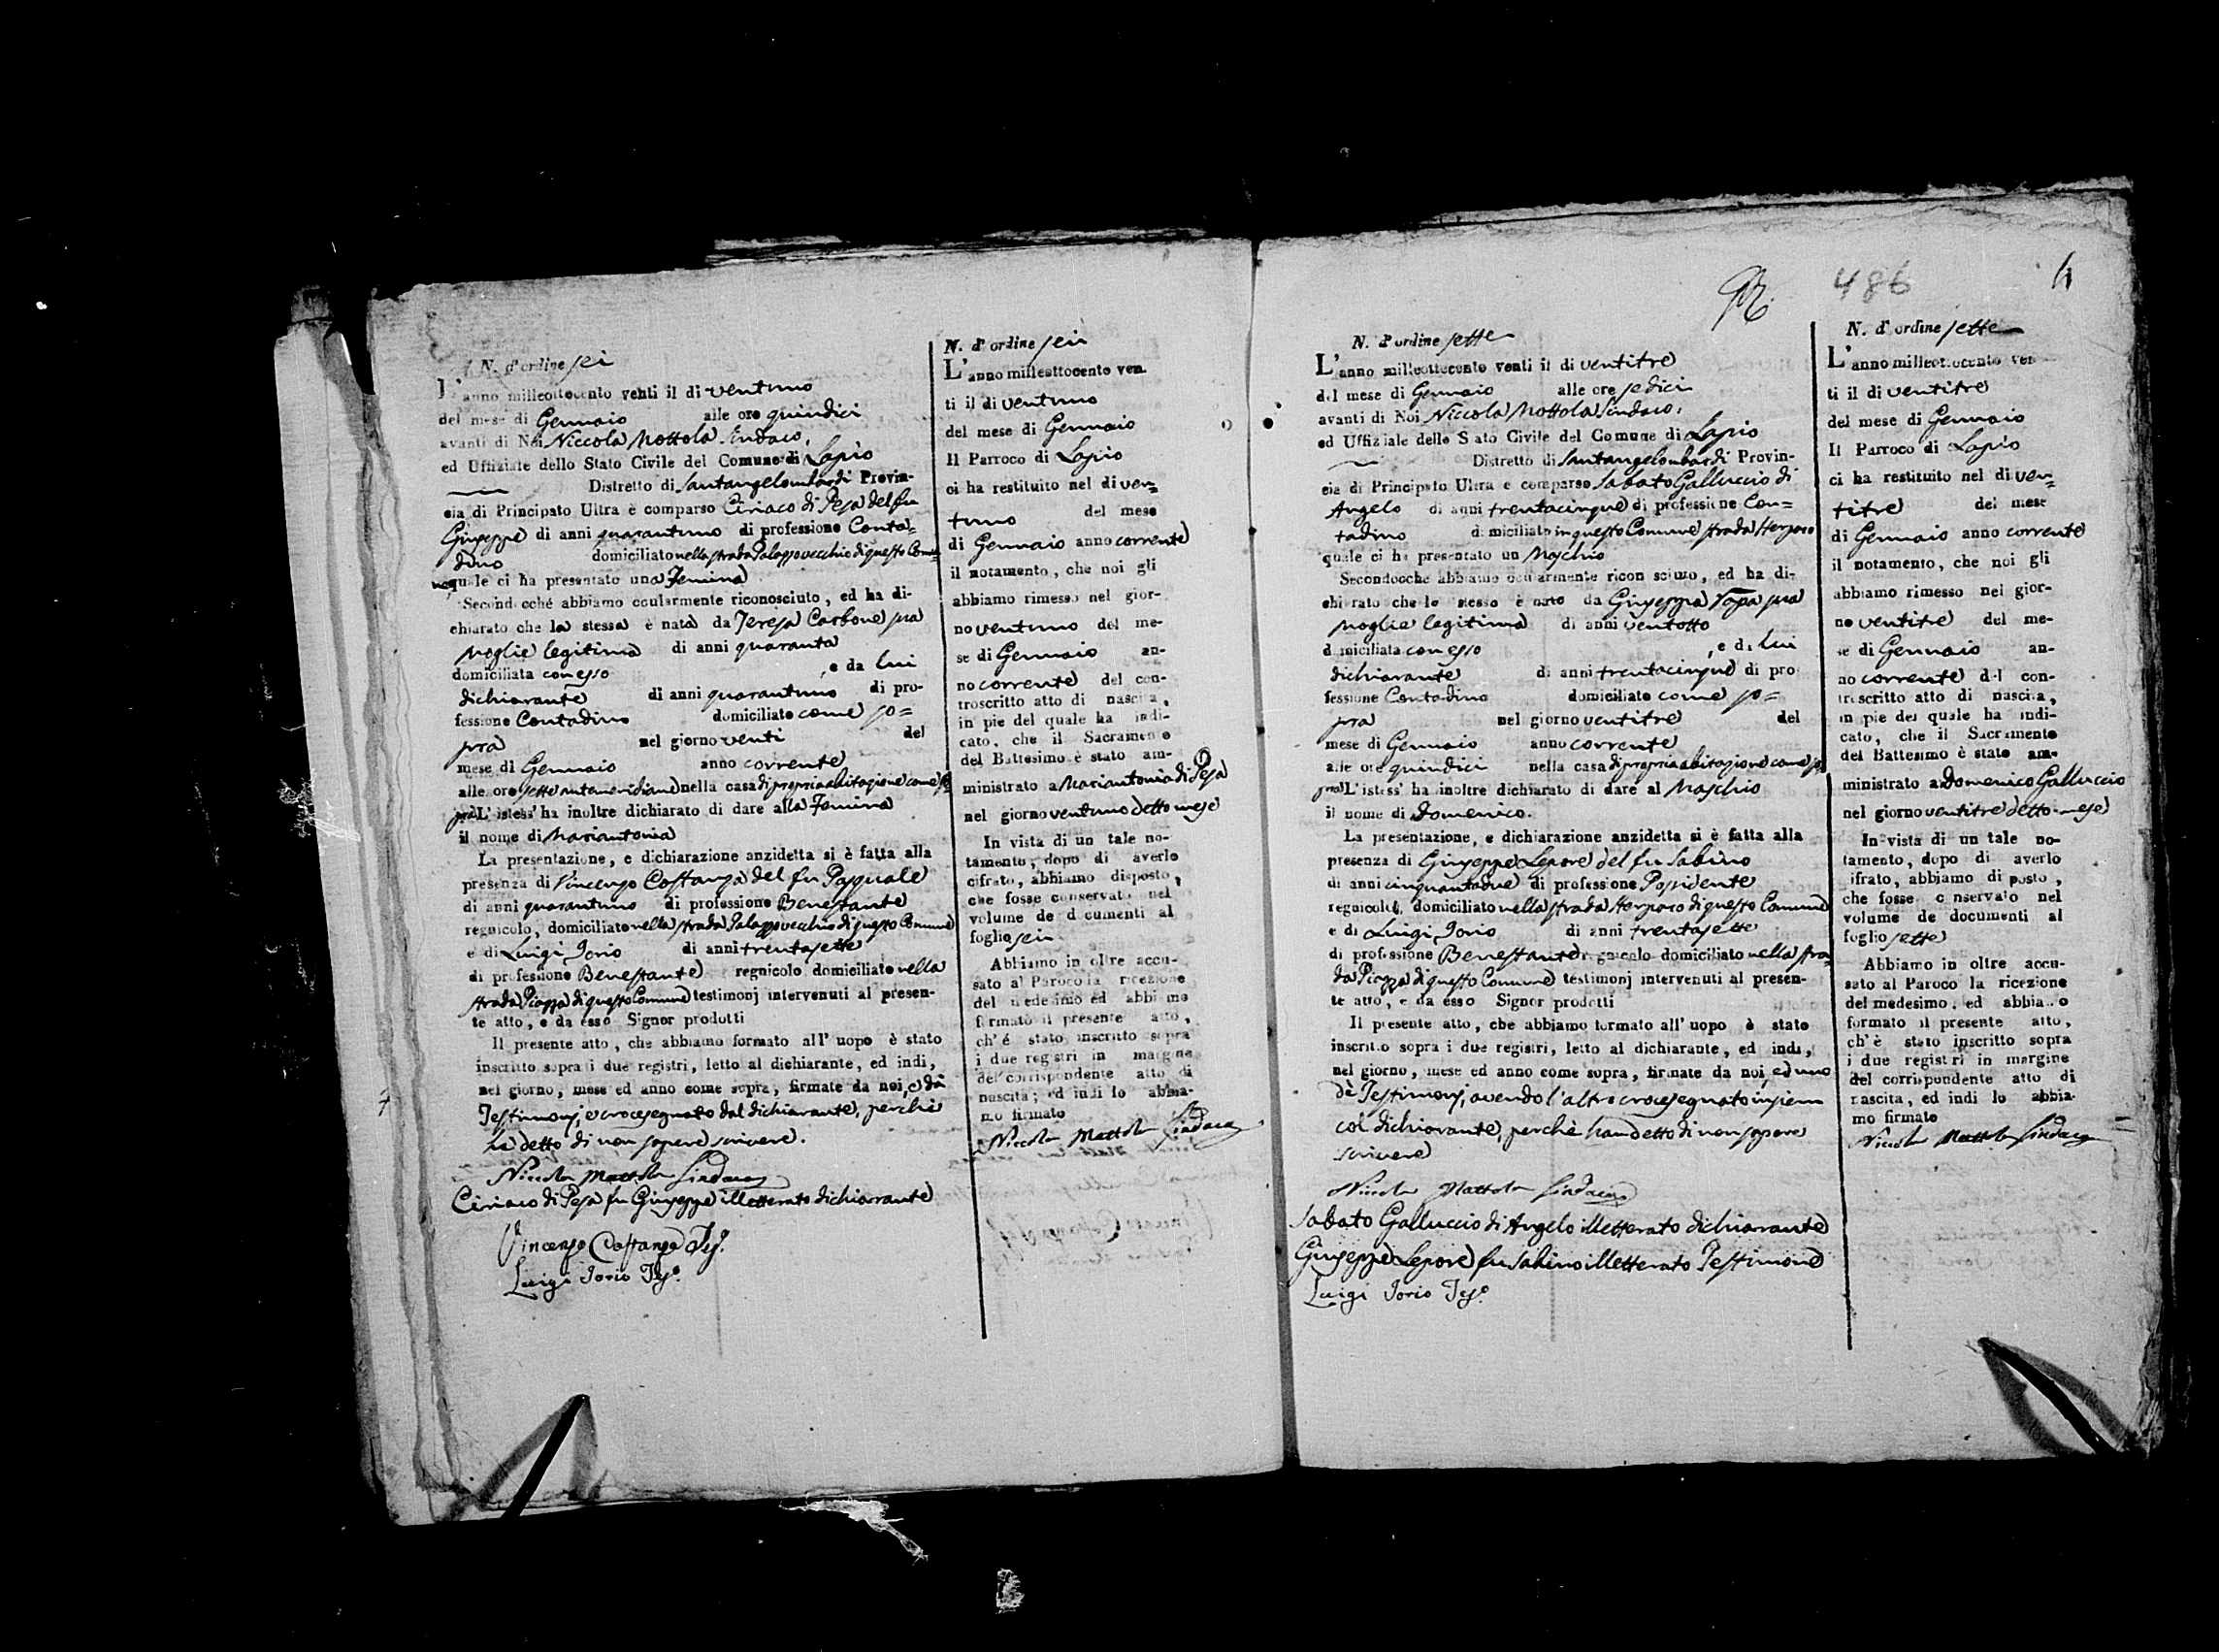 N. d'ordine sei
L'anno milleottocento venti il di ventuno
del mese di Gennaio alle ore quindici
avanti di Noi Niccola Mottola Sindaco,
ed Uffiziale dello Stato Civile del Comune di Lapio
Distretto di Santangelombardi Provin-
cia di Principato Ultra è comparso Ciriaco di Pesa del fu
Giuseppe di anni quarantuno di professione Conta=
dino domiciliato nella strada Palazzovecchio di questo Comu
ne quale ci ha presentato una Femina
Secondocché abbiamo ocularmente riconosciuto, ed ha di-
chiarato che la stessa è nata da Teresa Carbone sua
Moglie legitima di anni quaranta
domiciliata con esso, e da lui
dichiarante di anni quarantuno di pro-
fessione Contadino domiciliato come so=
pra nel giorno venti del
mese di Gennaio anno corrente
alle ore sette antemeridiane nella casa di propria abitazione come so
pra L'istess' ha inoltre dichiarato di dare alla Femina
il nome di Mariantonia
La presentazione, e dichiarazione anzidetta si è fatta alla
presenza di Vincenzo Costanza del fu Pasquale
di anni quarantuno di professione Benestante
regnicolo, domiciliato nella strada Palazzovecchio di questo Comune
e di Luigi Iorio di anni trentasette
di professione Benestante regnicolo domiciliato nella
strada Piazza di questo Comune testimonj intervenuti al presen-
te atto, e da esso Signor prodotti
Il presente atto, che abbiamo formato all' uopo è stato
inscritto sopra i due registri, letto al dichiarante, ed indi,
nel giorno, mese ed anno come sopra, firmate da noi, e da
Testimonj, e crocesegnato dal dichiarante, perchè
ha detto di non sapere scrivere.
Niccola Mottola Sindaco
Ciriaco di Pesa fu Giuseppe illetterato dichiarante
Vincenzo Costanza Tes.
Luigi Iorio Tes.o
N. d' ordine sei
L'anno milleottocento ven-
ti il di ventuno
del mese di Gennaio
Il Parroco di Lapio
ci ha restituito nel di ven=
tuno del mese
di Gennaio anno corrente
il notamento, che noi gli
abbiamo rimesso nel gior-
no ventuno del me-
se di Gennaio an-
no corrente del con-
troscritto atto di nascita,
in pie del quale ha indi-
cato, che il Sacramento
del Battesimo è stato am-
ministrato a Mariantonia di Pesa
nel giorno ventuno detto mese
In vista di un tale no-
tamento, dopo di averlo
cifrato, abbiamo disposto,
che fosse conservato nel
volume de documenti al
foglio sei
Abbiamo in oltre accu-
sato al Paroco la ricezione
del medesimo ed abbiamo
formato il presente atto,
ch' é stato inscritto sopra
i due registri in margine
del corrispondente atto di
nascita; ed indi lo abbia-
mo firmato
Niccola Mottola Sindaco
486
N. d' ordine sette
L'anno milleottocento venti il di ventitre
del mese di Gennaio alle ore sedici
avanti di Noi Niccola Mottola Sindaco,
ed Uffiziale dello Stato Civile del Comune di Lapio
Distretto di Santangelombardi Provin-
cia di Principato Ultra è comparso Sabato Galluccio di
Angelo di anni trentacinque di professione Con=
tadino domiciliato in questo Comune strada
quale ci ha presentato un Maschio
Secondocche abbiamo ocularmente riconosciuto, ed ha di-
chiarato che lo stesso è nato da Giuseppa Papa sua
Moglie legitima di anni ventotto
domiciliata con esso, e di lui
dichiarante di anni trentacinque di pro-
fessione Contadino domiciliato come so=
pra nel giorno ventitre del
mese di Gennaio anno corrente
alle ore quindici nella casa di propria abitazione come so
pra L'istess' ha inoltre dichiarato di dare al Maschio
il nome di Domenico.
La presentazione, e dichiarazione anzidetta si è fatta alla
presenza di Giuseppe Lepore del fu Sabino
di anni cinquantadue di professione Possidente
regnicolo, domiciliato nella strada di questo Comune
e di Luigi Iorio di anni trentasette
di professione Benestante regnicolo domiciliato nella stra
da Piazza di questo Comune testimonj intervenuti al presen-
te atto, e da esso Signor prodotti
Il presente atto, che abbiamo formato all' uopo è stato
inscritto sopra i due registri, letto al dichiarante, ed indi,
nel giorno, mese ed anno come sopra, firmate da noi, ed uno
dè Testimonj, avendo l'altro crocesegnato insiem
col dichiarante, perchè han detto di non sapere
scrivere
Niccola Mottola Sindaco
Sabato Galluccio di Angelo illetterato dichiarante
Giuseppe Lepore fu Sabino illetterato Testimone
Luigi Iorio Tes.o
N. d' ordine sette
L'anno milleottocento ven-
ti il di ventitre
del mese di Gennaio
Il Parroco di Lapio
ci ha restituito nel di ven=
titre del mese
di Gennaio anno corrente
il notamento, che noi gli
abbiamo rimesso nel gior-
no ventitre del me-
se di Gennaio an-
no corrente del con-
troscritto atto di nascita,
in pie del quale ha indi-
cato, che il Sacramento
del Battesimo è stato am-
ministrato a Domenico Galluccio
nel giorno ventitre detto mese
In vista di un tale no-
tamento, dopo di averlo
cifrato, abbiamo disposto,
che fosse conservato nel
volume de documenti al
foglio sette
Abbiamo in oltre accu-
sato al Paroco la ricezione
del medesimo, ed abbiamo
formato il presente atto,
ch'è stato inscritto sopra
i due registri in margine
del corrispondente atto di
nascita, ed indi lo abbia-
mo firmato
Niccola Mottola Sindaco